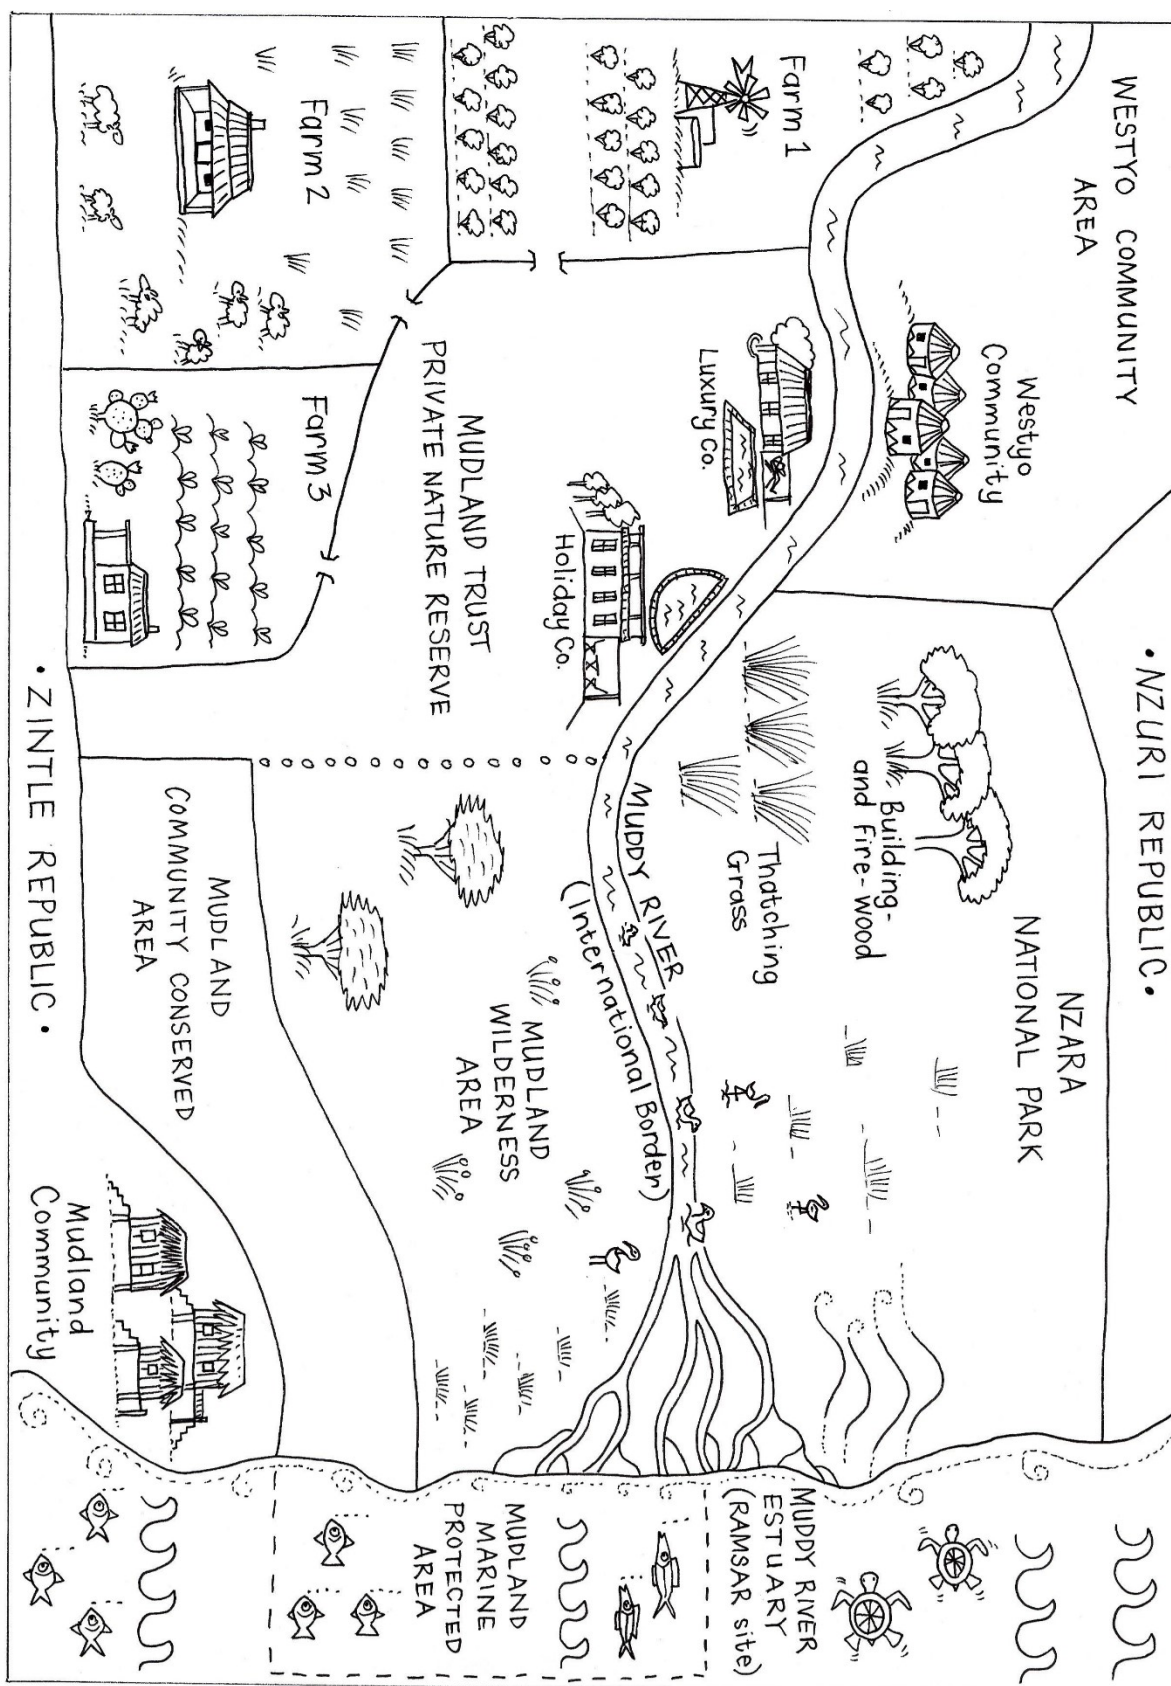 • NZURI REPUBLIC •
WESTYO COMMUNITY
AREA
Westyo
Community
NZARA
NATIONAL PARK
Building-
and Fire-wood
Thatching
Grass
Farm 1
Luxury Co.
Holiday Co.
MUDDY RIVER
(International Border)
MUDDY RIVER
ESTUARY
(RAMSAR site)
MUDLAND TRUST
PRIVATE NATURE RESERVE
MUDLAND
WILDERNESS
AREA
MUDLAND
MARINE
PROTECTED
AREA
Farm 2
Farm 3
MUDLAND
COMMUNITY CONSERVED
AREA
Mudland
Community
• ZINTLE REPUBLIC •